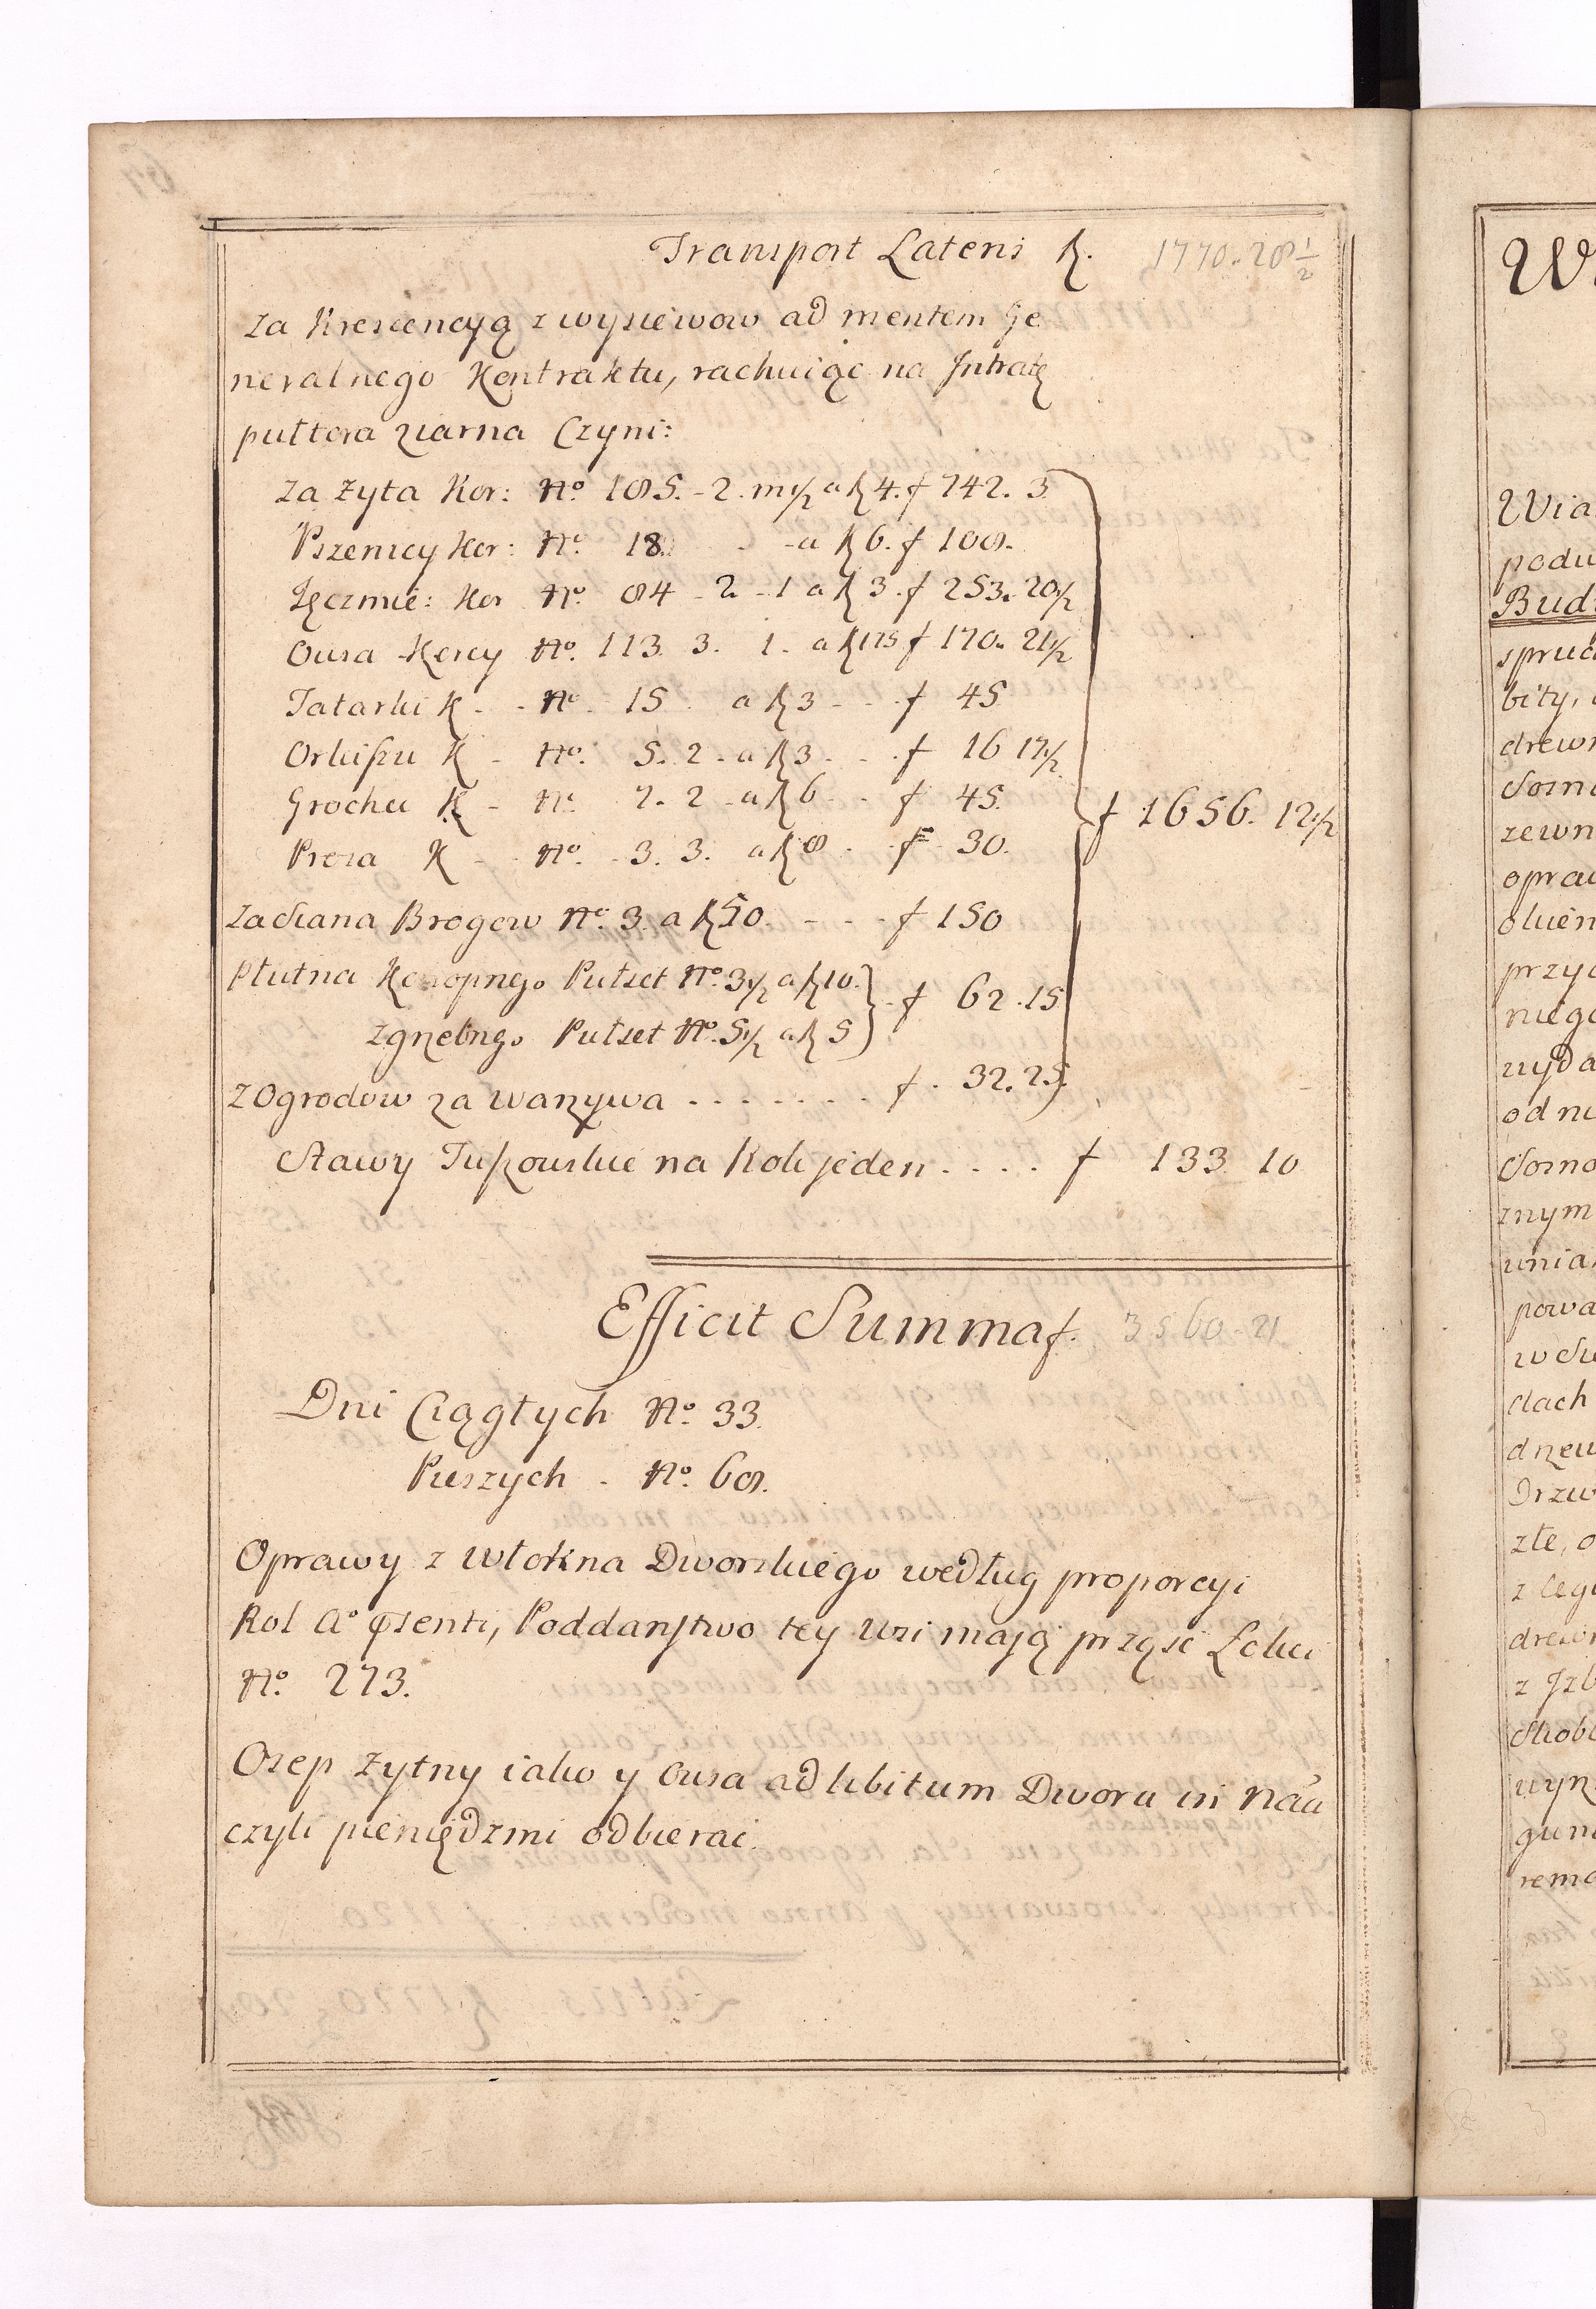 Transport Lateris f. 1770. 28 1/2
za Krescencyą z wysiewow ad mentem Ge
neralnego Kontraktu, rachuiąc na Intratę
pułtora ziarna Czyni:
za Zyta Kor: No. 185. - 2. m 1/2 a f 4. f 742. 3
Pszenicy Kor: No. 18. - a f 6. f 108.
Jęczmie: Kor No. 84 - 2 - 1 a f 3. f 253. 20 1/2
Owsa Korcy No. 113. 3. 1. a f 1 15 f 170. 21 1/2
Tatarki K - - No. 15. a f 3 - - f 45
Orkiszu K - No. 5. 2 - a f 3 - - f 16 17 1/2
Grochu K - No. 7. 2 - a f 6 - - f 45.
Prosa K - - No. - 3. 3. a f 8 - - f 30.
f 1656. 12 1/2
za Siana Brogow No. 3. a f 50. - - - f 150
Płutna Konopnego Pułset No. 3 1/2 a f 10. - f 62. 15
zgrzebnego Pułset No. 5 1/2 a f 5
z Ogrodow za warzywa . . . . . . . f. 32. 25.
Stawy Tuszowskie na Rok jeden . . . . f 133 10
Efficit Summa f. 3560 - 21
Dni Ciągłych No. 33.
Pieszych - No. 68.
Oprawy z włokna Dworskiego według proporcyi
Rol Ao psenti, Poddanstwo tey wsi mają prząść Łokci
No. 273.
Osep żytny iako y Owsa ad libitum Dworu in nāā
czyli pieniędzmi odbierać.
W
Wia
podu
Bud
spruc
bity,
drewn
Sosn
zewn
oprau
okien
przyc
niego
wyda
od ni
Sosno
znym
unia
powa
w Si
dach
drzew
Drzw
złe, o
z Leg
drewn
z Izb
Skob
wyrz
gun
remo